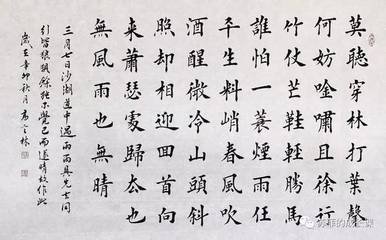 莫聽穿林打葉聲
何妨唫嘯且徐行
竹杖芒鞋輕勝馬
誰怕一蓑煙雨任
平生料峭春風吹
酒醒微冷山頭斜
照却相迎回首向
來蕭瑟處歸去也
無風雨也無晴
三月七日沙湖道中遇雨雨具先去同
行皆狼狽餘獨不覺已而遂晴故作此
歲在辛卯秋月